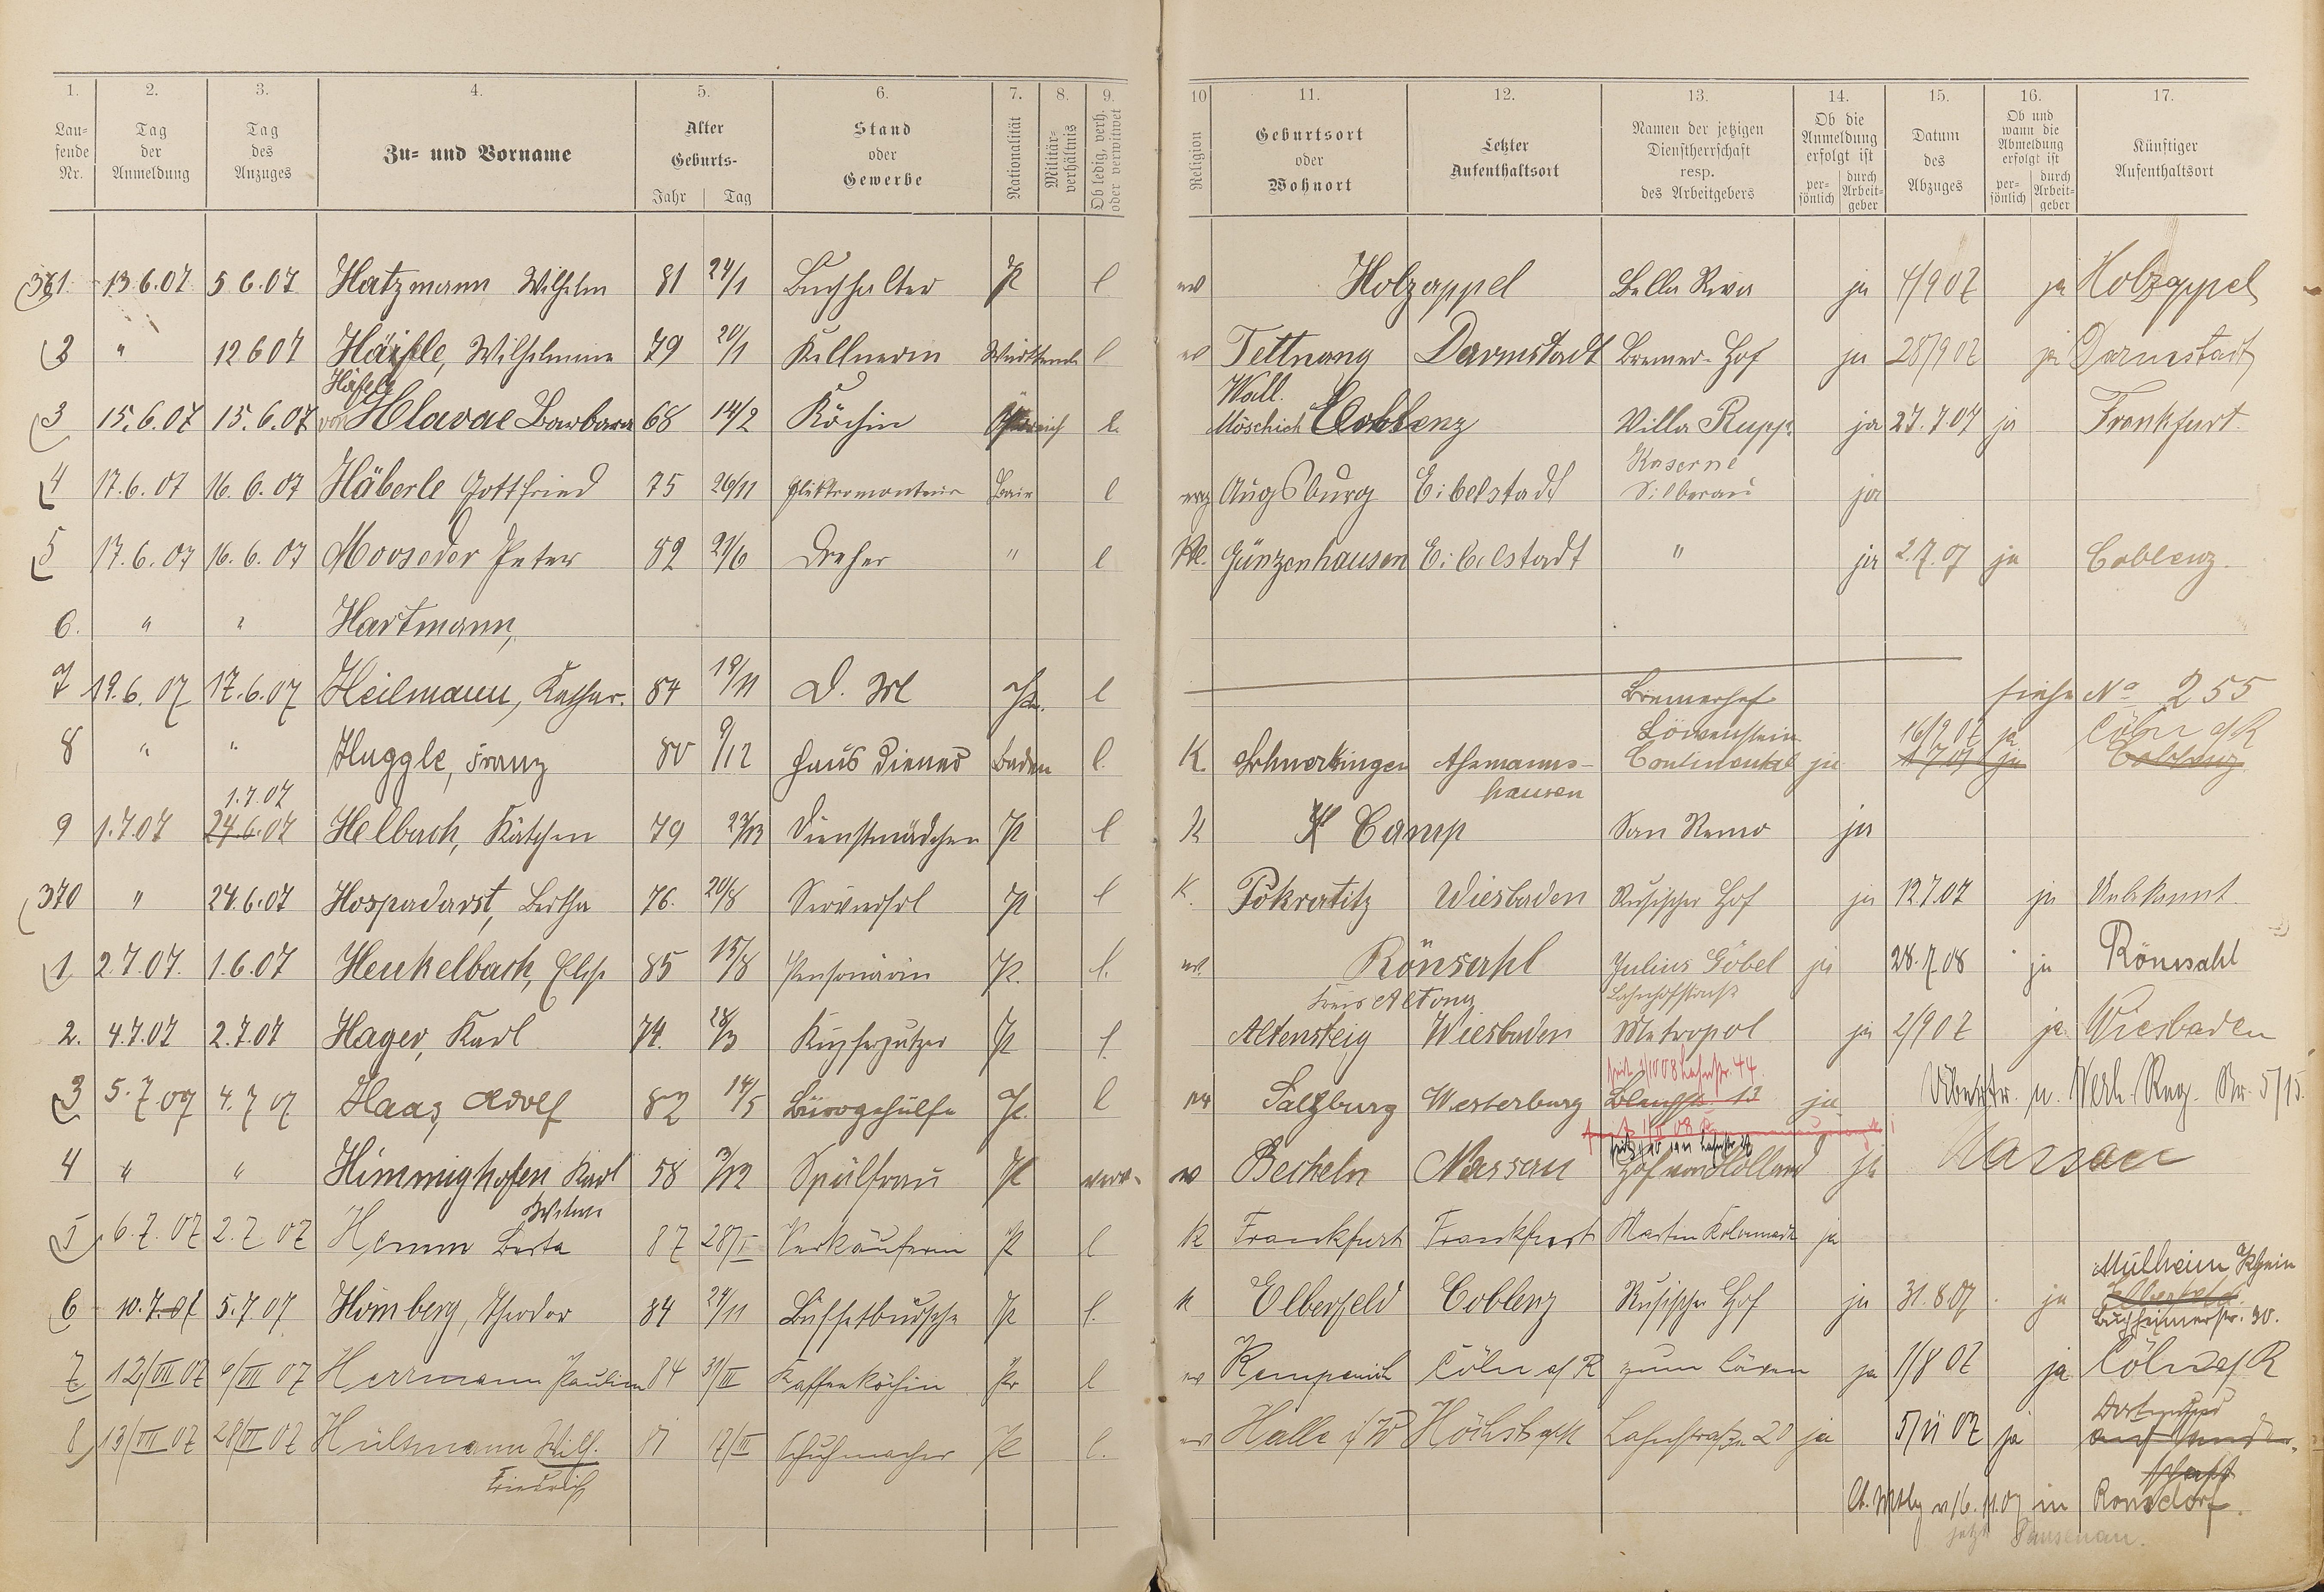 1. 2. 3. 4. 5. 6. 7. 8. 9. 10 11. 12. 13. 14. 15. 16. 17.
Lau-
fende
Nr.
Tag
der
Anmeldung
Tag
des
Anzuges
Zu- und Vorname
Alter
Geburts-
Jahr Tag
Stand
oder
Gewerbe
Nationalität
Militär-
verhältnis
Ob ledig, verh.
oder verwitwet
Religion
Geburtsort
oder
Wohnort
Letzter
Aufenthaltsort
Namen der jetzigen
Dienstherrschaft
resp.
des Arbeitgebers
Ob die
Anmeldung
erfolgt ist
per-
sönlich
durch
Arbeit-
geber
Datum
des
Abzuges
Ob und
wann die
Abmeldung
erfolgt ist
per-
sönlich
durch
Arbeit-
geber
Künftiger
Aufenthaltsort
361. 13.6.07 5 6.07 Hatzmann Wilhelm 81 24/1 Buchhalter P l ev Holzappel Bella Riva ja 4/9 07 ja Holzappel
2 " 12 6 07 Häifle, Wilhelmine 79 20/1 Kellnerin Württemb l ev Tettnang Darmstadt Bremer-Hof ja 28/9 07 ja Darmstadt
Häfele
Wall.
3 15.6.07 15.6.07 von Hlavac Barbara 68 14/2 Köchin Österreich l. Möschich Coblenz Villa Rupp. ja 27.7.07 ja Frankfurt.
Kaserne
4 17.6.07 16.6.07 Häberle Gottfried 75 26/11 Elektromonteur Bair l evg Augsburg Eibelstadt Silberau ja
5 17.6.07 16.6.07 Mooseder Peter 82 21/6 Dreher " l Kt. Günzenhausen Eibelstadt " ja 2.7.07 ja Coblenz.
6. " " Hartmann,
7 19.6.07 17.6.07 Heilmann, Kathar. 84 19/11 D. M Pr. l Bremerhof siehe No 255
Löwenstein 16/9 07 ja Cöln a/R
8 " " Huggle, Franz 80 9/12 Hausdiener Baden l. K. Schnerkingen Assmanns- Continental ja 1 7 07 ja Coblenz
hausen
1.7.07
9 1.7.07 24.6.07 Helbach, Kätchen 79 23/12 Dienstmädchen P l K Camp San Remo ja
370 " 24.6.07 Hospadarst, Bertha 76. 20/8 Servierfrl P l K. Pokratitz Wiesbaden Russischer Hof ja 12.7.07 ja Unbekannt.
1 2.7.07. 1.6.07 Henkelbach, Else 85 15/8 Pensionärin P. l. ev. Rönsahl Julius Göbel ja 28.7.08 ja Rönsahl
Kreis Altona Bahnhofstraße
2. 4.7.07 2.7.07 Hager, Karl 74. 28/3 Kupferputzer P l. Altensteig Wiesbaden Metropol ja 2/9 07 ja Wiesbaden
seit 1/10 08 Lahnstr. 44.
3 5.7.07 4.7 07 Haas, Adolf 82 14/5 Bürogehülfe P. l ev Salzburg Westerburg 13 ja
4 " " Himmighofen Karl 58 3/12 Spülfrau P verw. ev Becheln Nassau Hof von Holland ja Nassau
Witwe
5 6.7.07 2.7 07 Hemm Berta 87 28/I Verkäuferin P l K Frankfurt Frankfurt Martin ja
Mülheim a/Rhein
6 10.7.07 5.7.07 Homberg, Theodor 84 24/11 Buffetbursche P l. K Elberfeld Coblenz Russischer Hof ja 31.8.07. ja Elberfeld
Buchheimerstr. 30.
7 12/VII 07 6/VII 07 Herrmann Pauline 84 31/III Kaffeeköchin Pr l ev Kempenich Cöln a/R zum Löwen ja 1/8 07 ja Cöln a/R
Dortmund
8 13/VII 07 28/VI 07 Hülsmann Wilh. 81 17/III Schuhmacher P l. ev Halle i/W Höchst a/M Lahnstraße 20 ja 5/11 07 ja auf Wander-
Friedrich schaft
lt. Mttlg v 16.11.07 in Ronsdorf.
jetzt Dausenau.